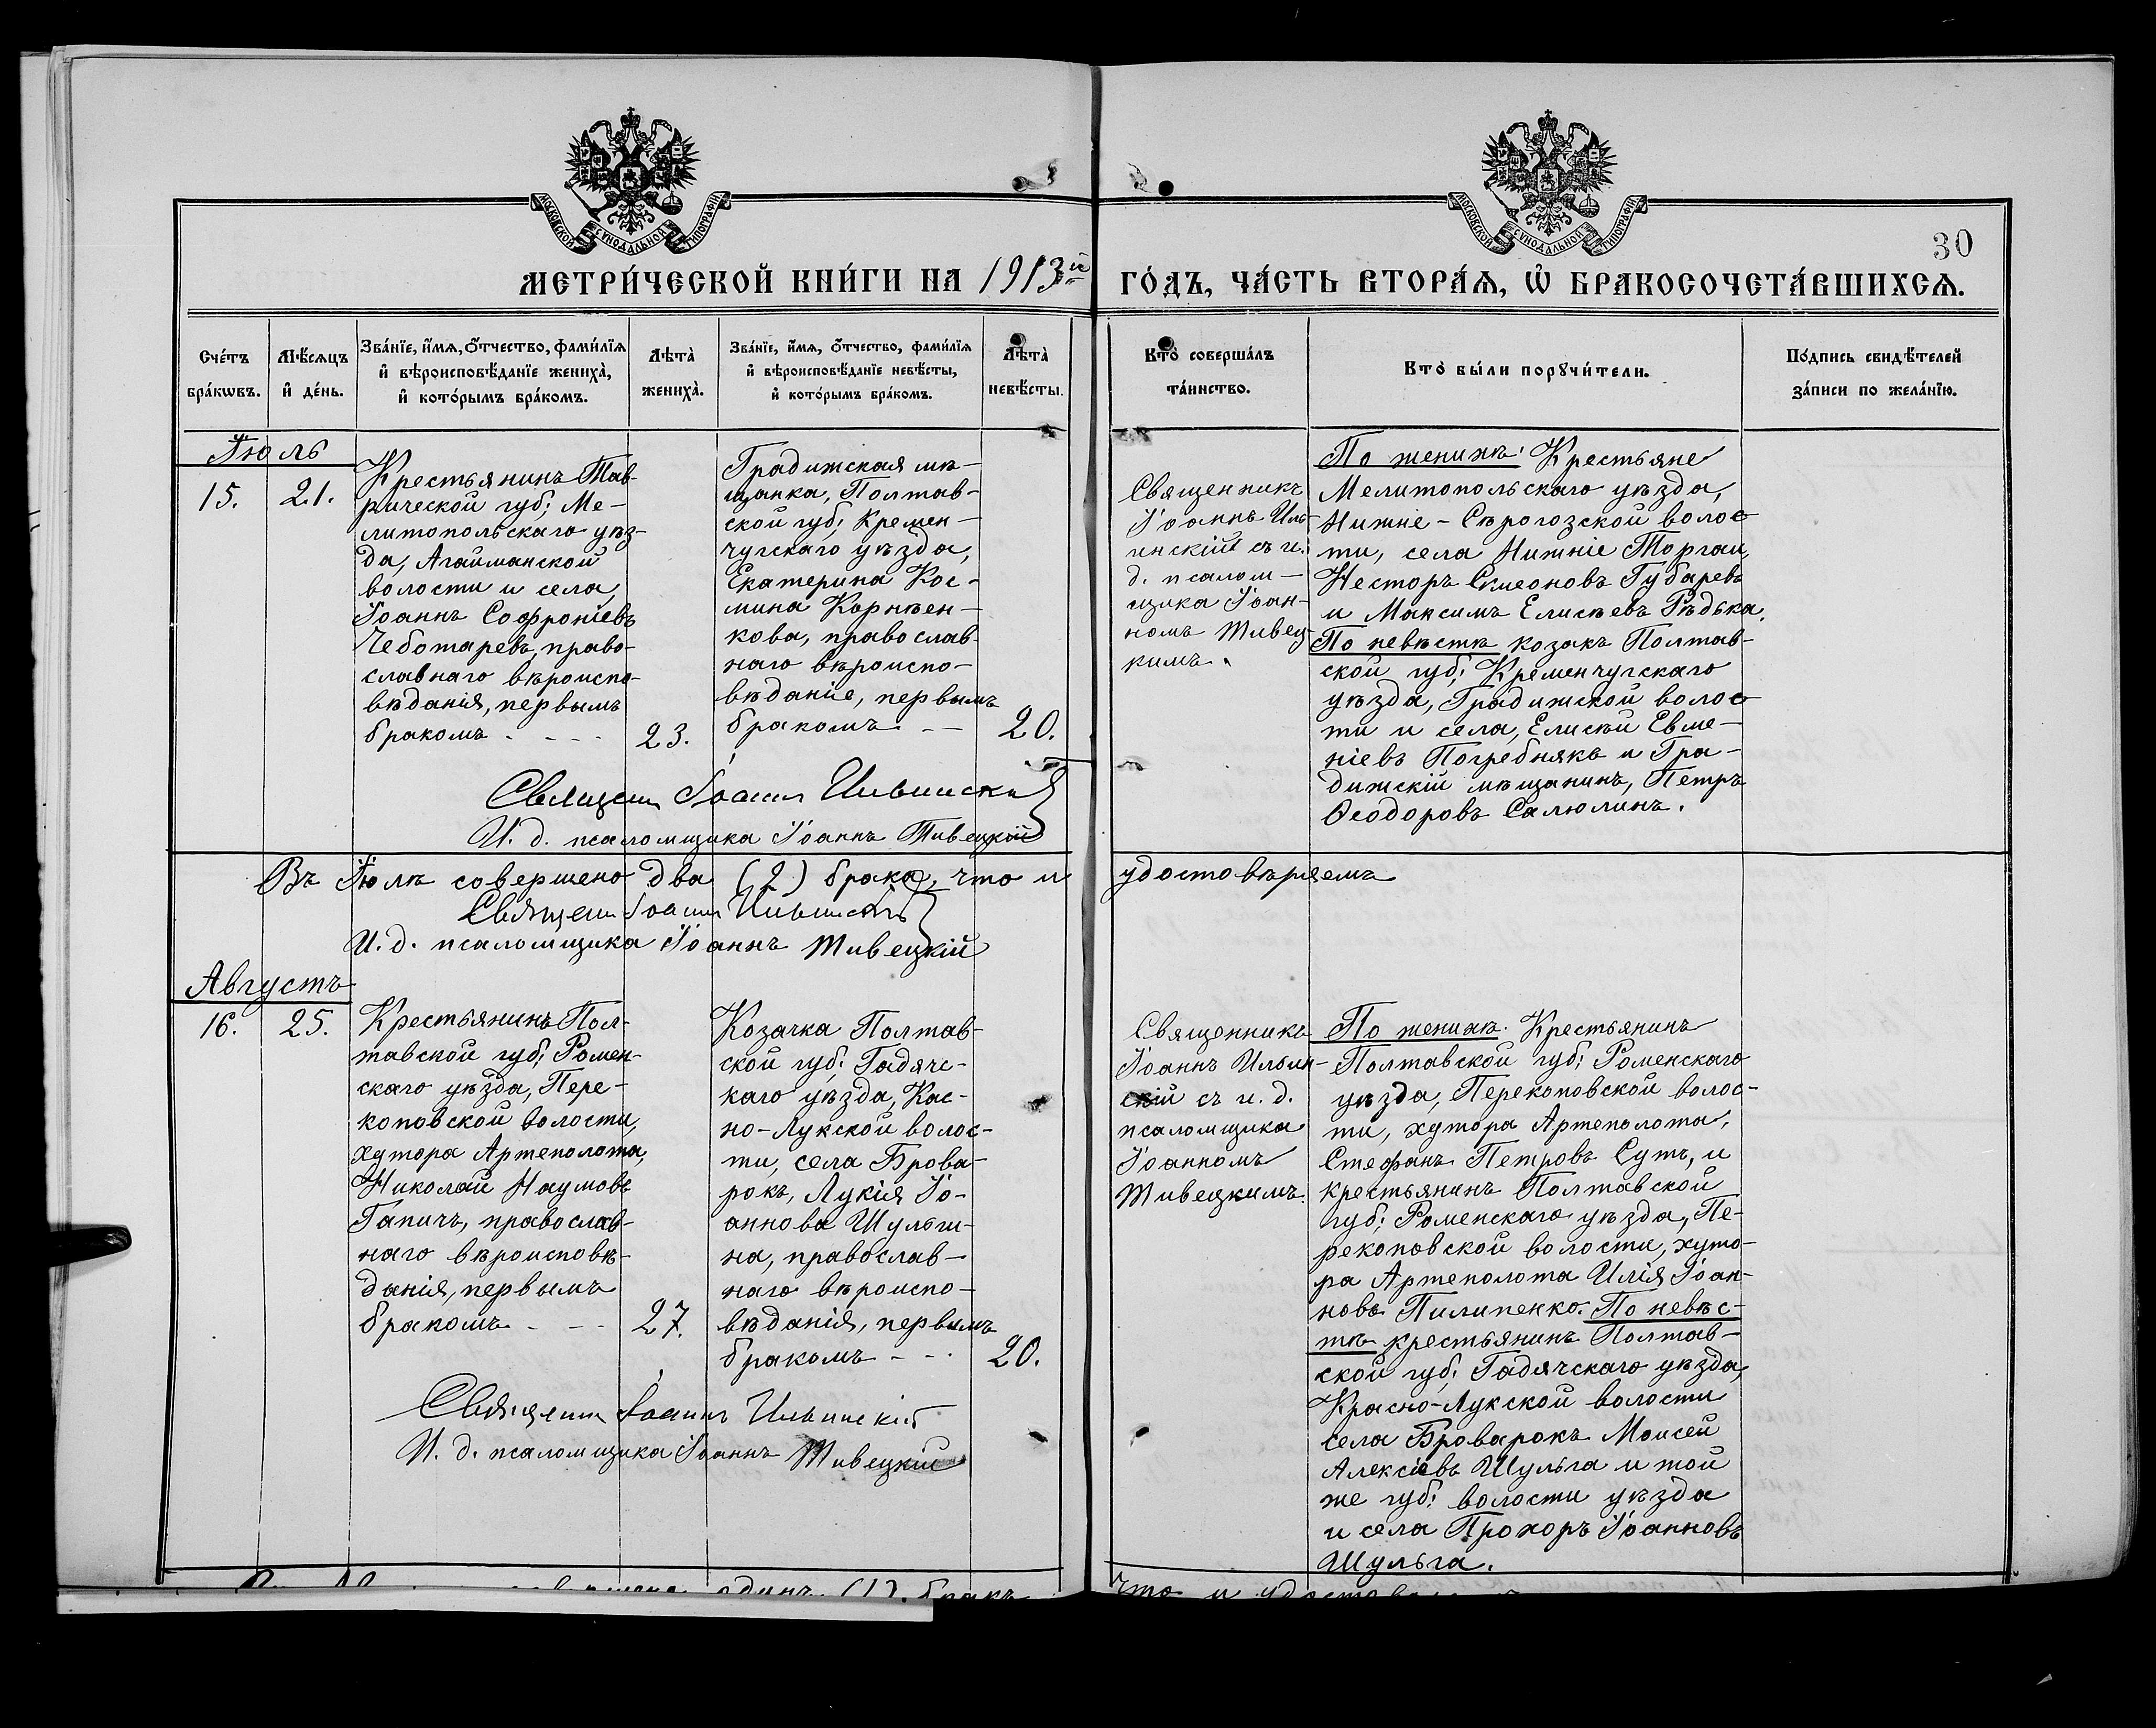 МОСКОВСКОЙ СѴНОДАЛЬНОЙ ТИПОГРАФІИ
МОСКОВСКОЙ СѴНОДАЛЬНОЙ ТИПОГРАФІИ
30
МЕТРИ́ЧЕСКОЙ КНИ́ГИ НА 1913й ГО́ДЪ, ЧА́СТЬ ВТОРА́Ѧ, Ѡ҆ БРАКОСОЧЕТА́ВШИХСѦ.
Сче́тъ
бра́кѡвъ.
Мѣ́сѧцъ
и҆ де́нь.
Зва́нїе, и҆́мѧ, ѻ҆́тчество, фами́лїѧ
и҆ вѣроисповѣ́данїе жениха̀,
и҆ кото́рымъ бра́комъ.
Лѣта̀
жениха̀.
Зва́нїе, и҆́мѧ, ѻ҆́тчество, фами́лїѧ
и҆ вѣроисповѣ́данїе невѣ́сты,
и҆ кото́рымъ бра́комъ.
Лѣта̀
невѣ́сты.
Кто̀ соверша́лъ
та́инство.
Кто̀ бы́ли порꙋчи́тели.
По́дпись свидѣ́телей
за́писи по жела́нїю.
Іюль
15.
21.
Крестьянинъ Тав-
рической губ; Ме-
литопольскаго уѣз-
да, Агайманской
волости и села,
Іоаннъ Софроніевъ
Чеботаревъ, право-
славнаго вѣроиспо-
вѣданія, первымъ
бракомъ - - - -
23.
Градижская мѣ-
щанка, Полтав-
ской губ; Кремен-
чугскаго уѣзда,
Екатерина Кос-
мина Корнѣен-
кова, православ-
наго вѣроиспо-
вѣданіе, первымъ
бракомъ - -
20.
Священникъ
Іоаннъ Иль-
инскій съ и.
д. псалом-
щика Іоан-
номъ Тивец-
кимъ.
По женихѣ: Крестьяне
Мелитопольскаго уѣзда,
Нижне-Сѣрогозской волос-
ти, села Нижніе Торгаи,
Несторъ Симеоновъ Губаревъ
и Максимъ Елисѣевъ Рѣдька.
По невѣстѣ козакъ Полтав-
ской губ; Кременчугскаго
уѣзда, Градижской волос-
ти и села, Елисѣй Евме-
ніевъ Погребнякъ и Гра-
дижскій мѣщанинъ, Петръ
Ѳеодоровъ Салюлинъ.
Священ Іоаннъ Ильинскій
И. д. псаломщика Іоаннъ Тивецкій
Въ Іюлѣ совершено два (2) брака, что и удостовѣряемъ
Священ Іоаннъ Ильинскій
И. д. псаломщика Іоаннъ Тивецкій
Августъ
16.
25.
Крестьянинъ Пол-
тавской губ; Ромен-
скаго уѣзда, Пере-
коповской волости,
хутора Артеполота,
Николай Наумовъ
Гапичъ, православ-
наго вѣроисповѣ-
данія, первымъ
бракомъ - - -
27.
Козачка Полтав-
ской губ; Гадячс-
каго уѣзда, Кас-
но-Лукской волос-
ти, села Брова-
рокъ, Лукія Іо-
аннова Шульги-
на, православ-
наго вѣроиспо-
вѣданія, первымъ
бракомъ - - -
20.
Священникъ
Іоаннъ Ильин-
скій съ и. д.
псаломщика
Іоанномъ
Тивецкимъ.
По женихѣ. Крестьянинъ
Полтавской губ; Роменскаго
уѣзда, Перекоповской волос-
ти, хутора Артеполота,
Стефанъ Петровъ Сутъ, и
крестьянинъ Полтавской
губ; Роменскаго уѣзда, Пе-
рекоповской волости, хуто-
ра Артеполота Илія Іоан-
новъ Пилипенко. По невѣс-
тѣ крестьянинъ Полтав-
ской губ; Гадячскаго уѣзда,
Красно-Лукской волости
села Броварокъ Моисей
Алексіевъ Шульга и той
же губ; волости уѣзда
и села Прохоръ Іоанновъ
Шульга.
Священ Іоаннъ Ильинскій
И. д. псаломщика Іоаннъ Тивецкій
одинъ (1). бракъ
что и